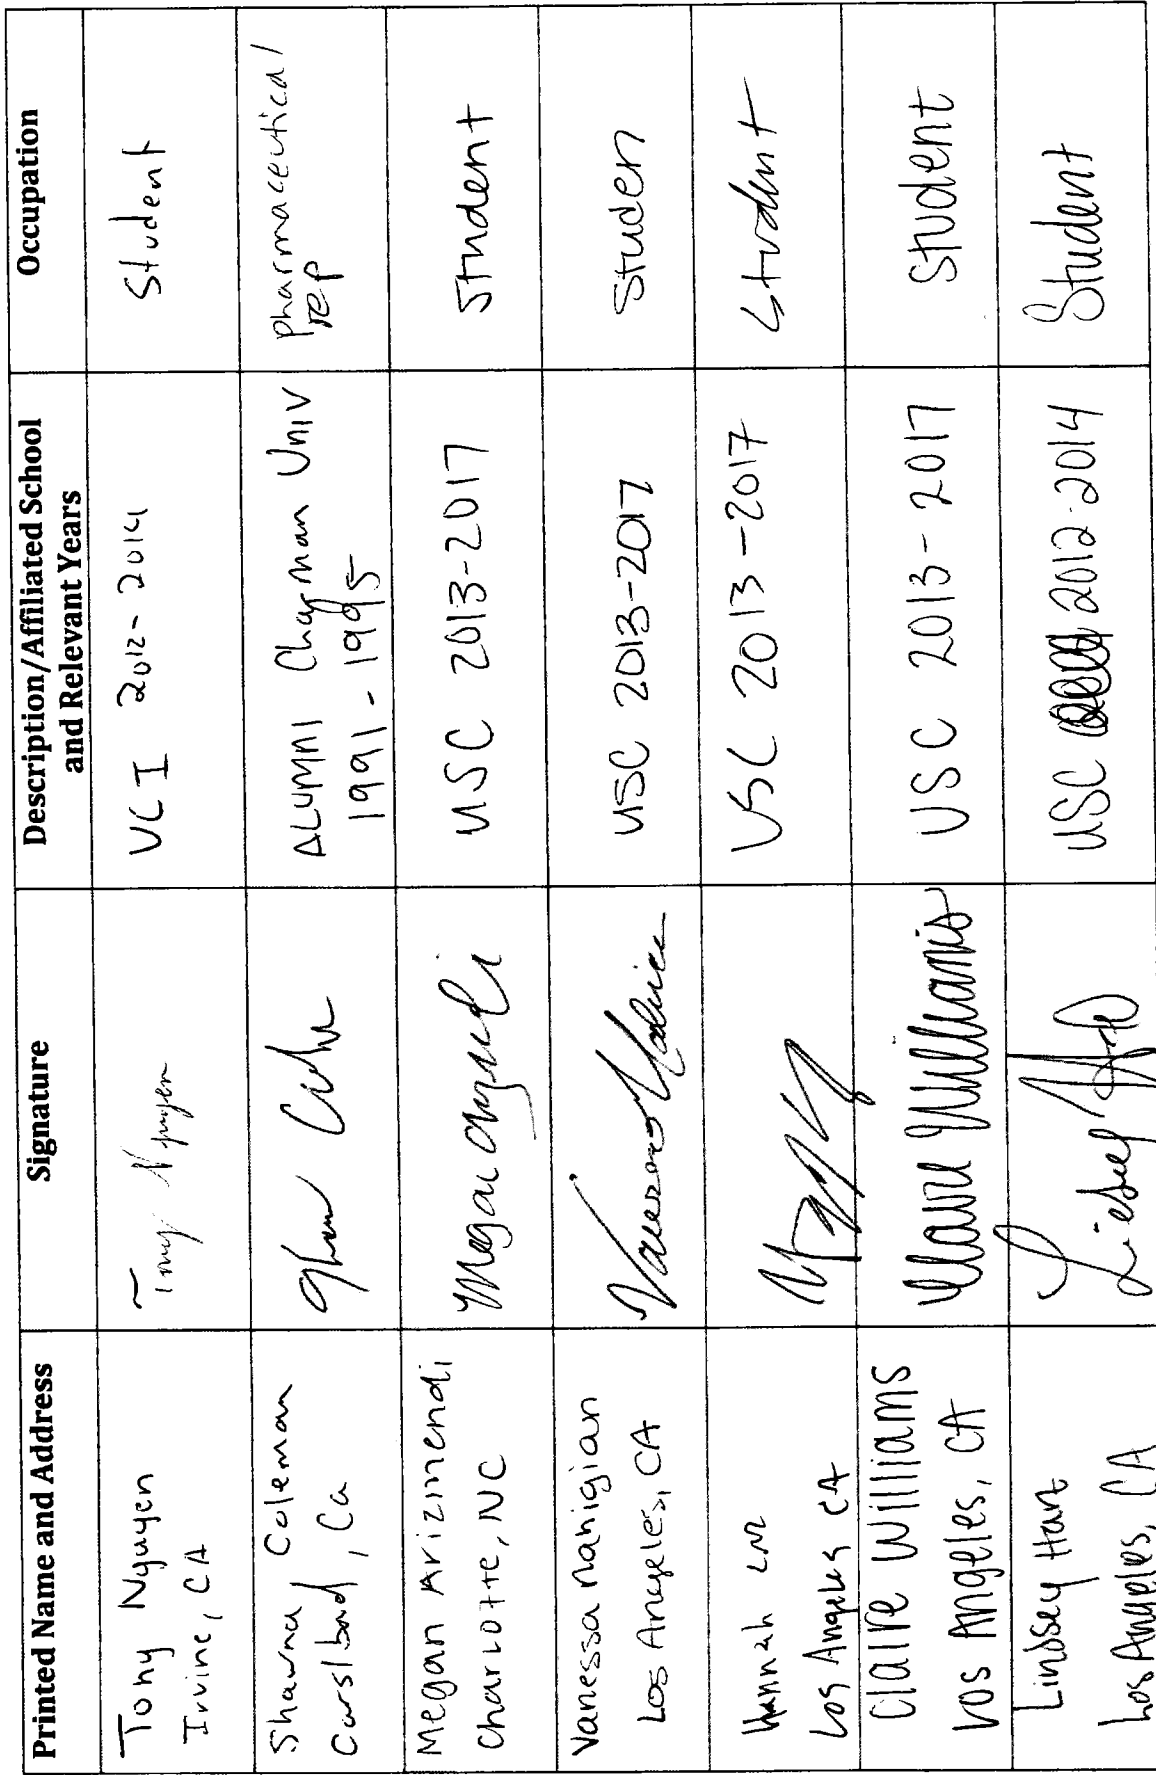 Printed Name and Address
Signature
Description/Affiliated School
and Relevant Years
Occupation
Tony Nguyen
Irvine, CA
Tony Nguyen
UCI 2012-2014
Student
Shawna Coleman
Carslbad, Ca
ALUMNI Chapman Univ
1991-1995
pharmaceutical
rep
Megan Arizmendi
Charlotte, NC
USC 2013-2017
Student
Vanessa nahigian
Los Angeles, CA
USC 2013-2017
Student
Hannah
Los Angeles CA
USC 2013-2017
Student
Claire Williams
Los Angeles, CA
Claire Williams
USC 2013-2017
Student
Lindsey Hart
Los Angeles, CA
USC 2012-2014
Student